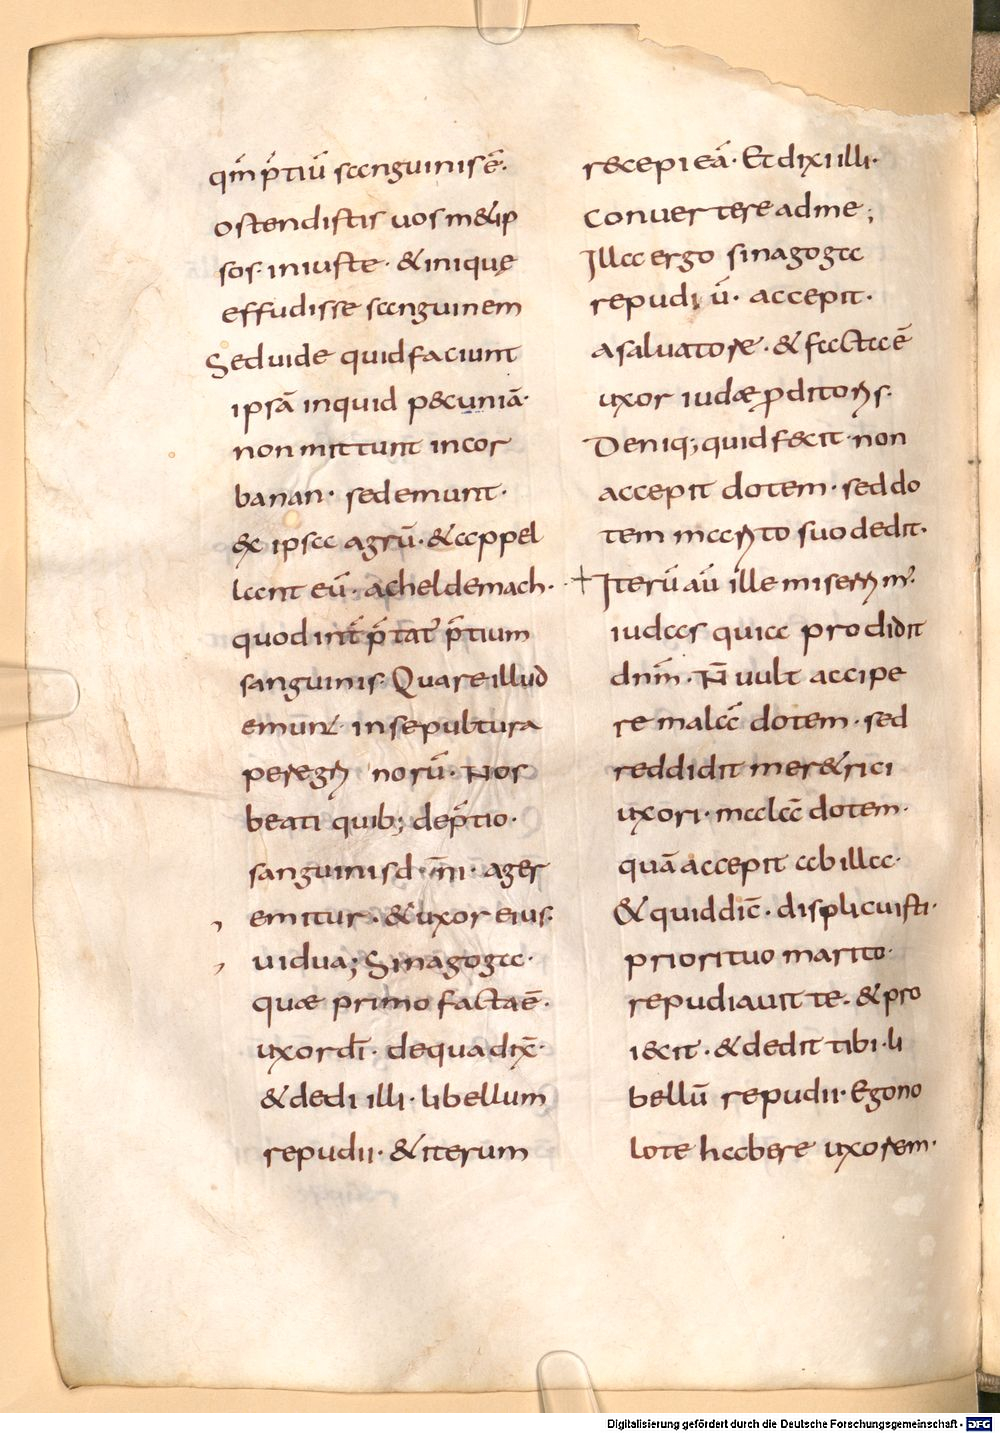 qm̄ p̄tiū sanguinis ē·
ostendistis uos met ip
sos· iniuste· & inique
effudisse sanguinem
Sed uide quid faciunt
ipsā inquid pecuniā·
non mittunt in cor
banan· sed emunt·
ex ipsa agrū· & appel
lant eū· acheldemach·
quod int̄ p̄tat᷑ p̄tium
sanguinis· Quare illud
emunt· in sepultura
peregri norū· Nos
beati quib; de p̄tio·
sanguinis d·n̄i· ager
emitur· & uxor eius·
uidua; Sinagoga·
quæ primo facta ē·
uxor dī· de qua dix̄·
& dedi illi· libellum
repudii· & iterum
recepi eā· Et dixi illi·
Conuertere ad me;
Illa ergo sinagoga
repudi ū· accepit·
a saluatore· & facta ē
uxor iudæ ꝓditoris·
Deniq; quid fecit· non
accepit dotem· sed do
tem marito suo dedit·
+ Iterū aū ille miserrim᷒·
iudas quia prodidit
dnm̄· N̄ uult accipe
re malā dotem· sed
reddidit meretrici
uxori· malā dotem·
quā accepit ab illa·
& quid dic̄· displicuisti·
priori tuo marito·
repudiauit te· & pro
iecit· & dedit tibi· li
bellū repudii· Ego no
lo te habere uxorem·
Digitalisierung gefördert durch die Deutsche Forschungsgemeinschaft - DFG